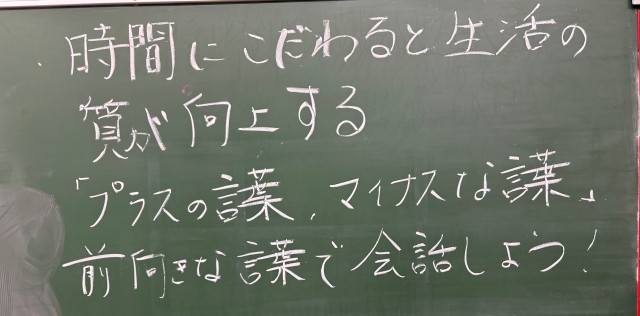 時間にこだわると生活の
質が向上する
「プラスの言葉，マイナスな言葉」
前向きな言葉で会話しよう！